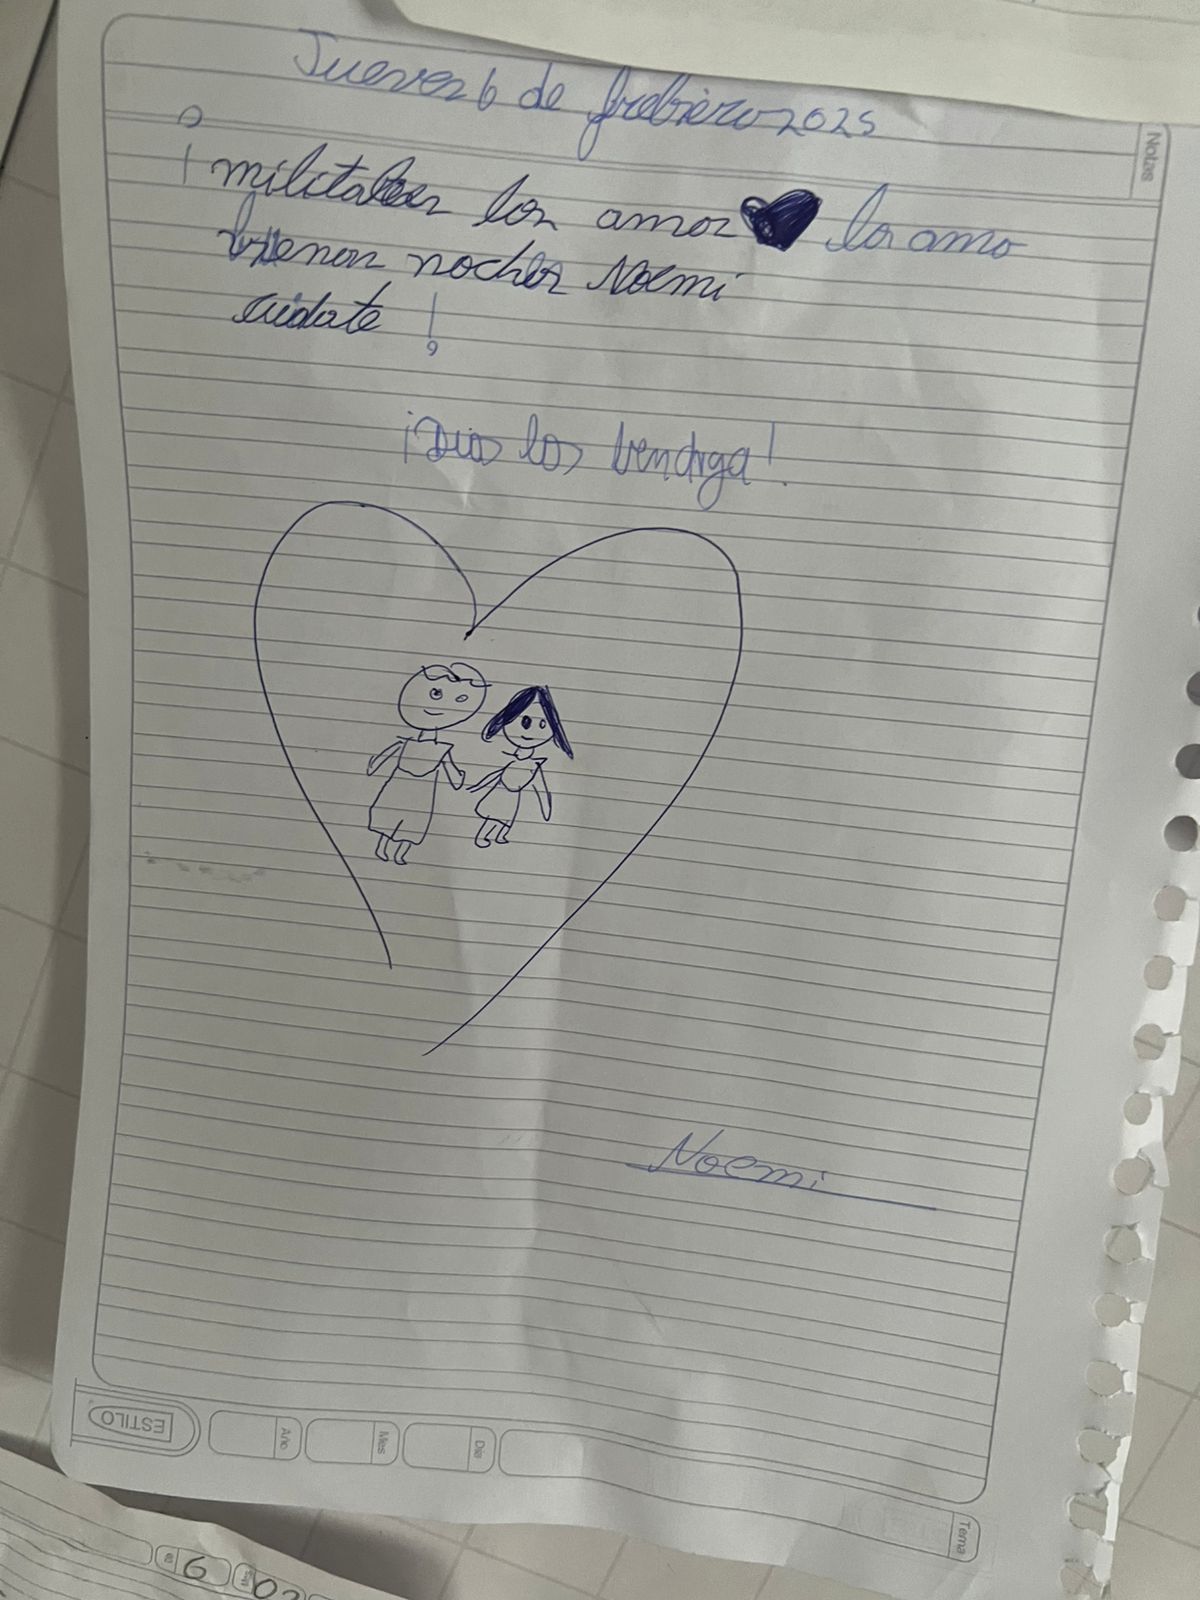 Jueves 6 de frebriero 2025
¡militares los amo los amo
buenas noches Noemi
cuidate !
¡Dios los bendiga!.
Noemi
Notas
ESTILO
Año
Mes
Dia
Tema
6
02